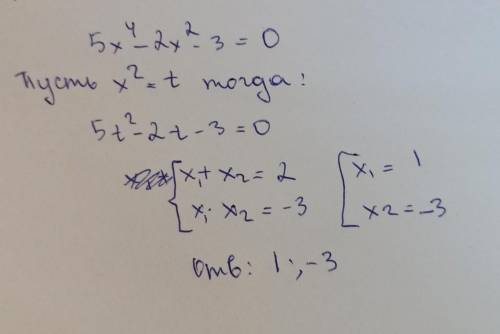 5x⁴ - 2x² - 3 = 0
Пусть x² = t тогда:
5t² - 2t - 3 = 0
{ x₁ + x₂ = 2 [ x₁ = 1
x₁ · x₂ = -3 x₂ = -3
отв: 1 ; -3